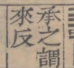 承之謂
來反